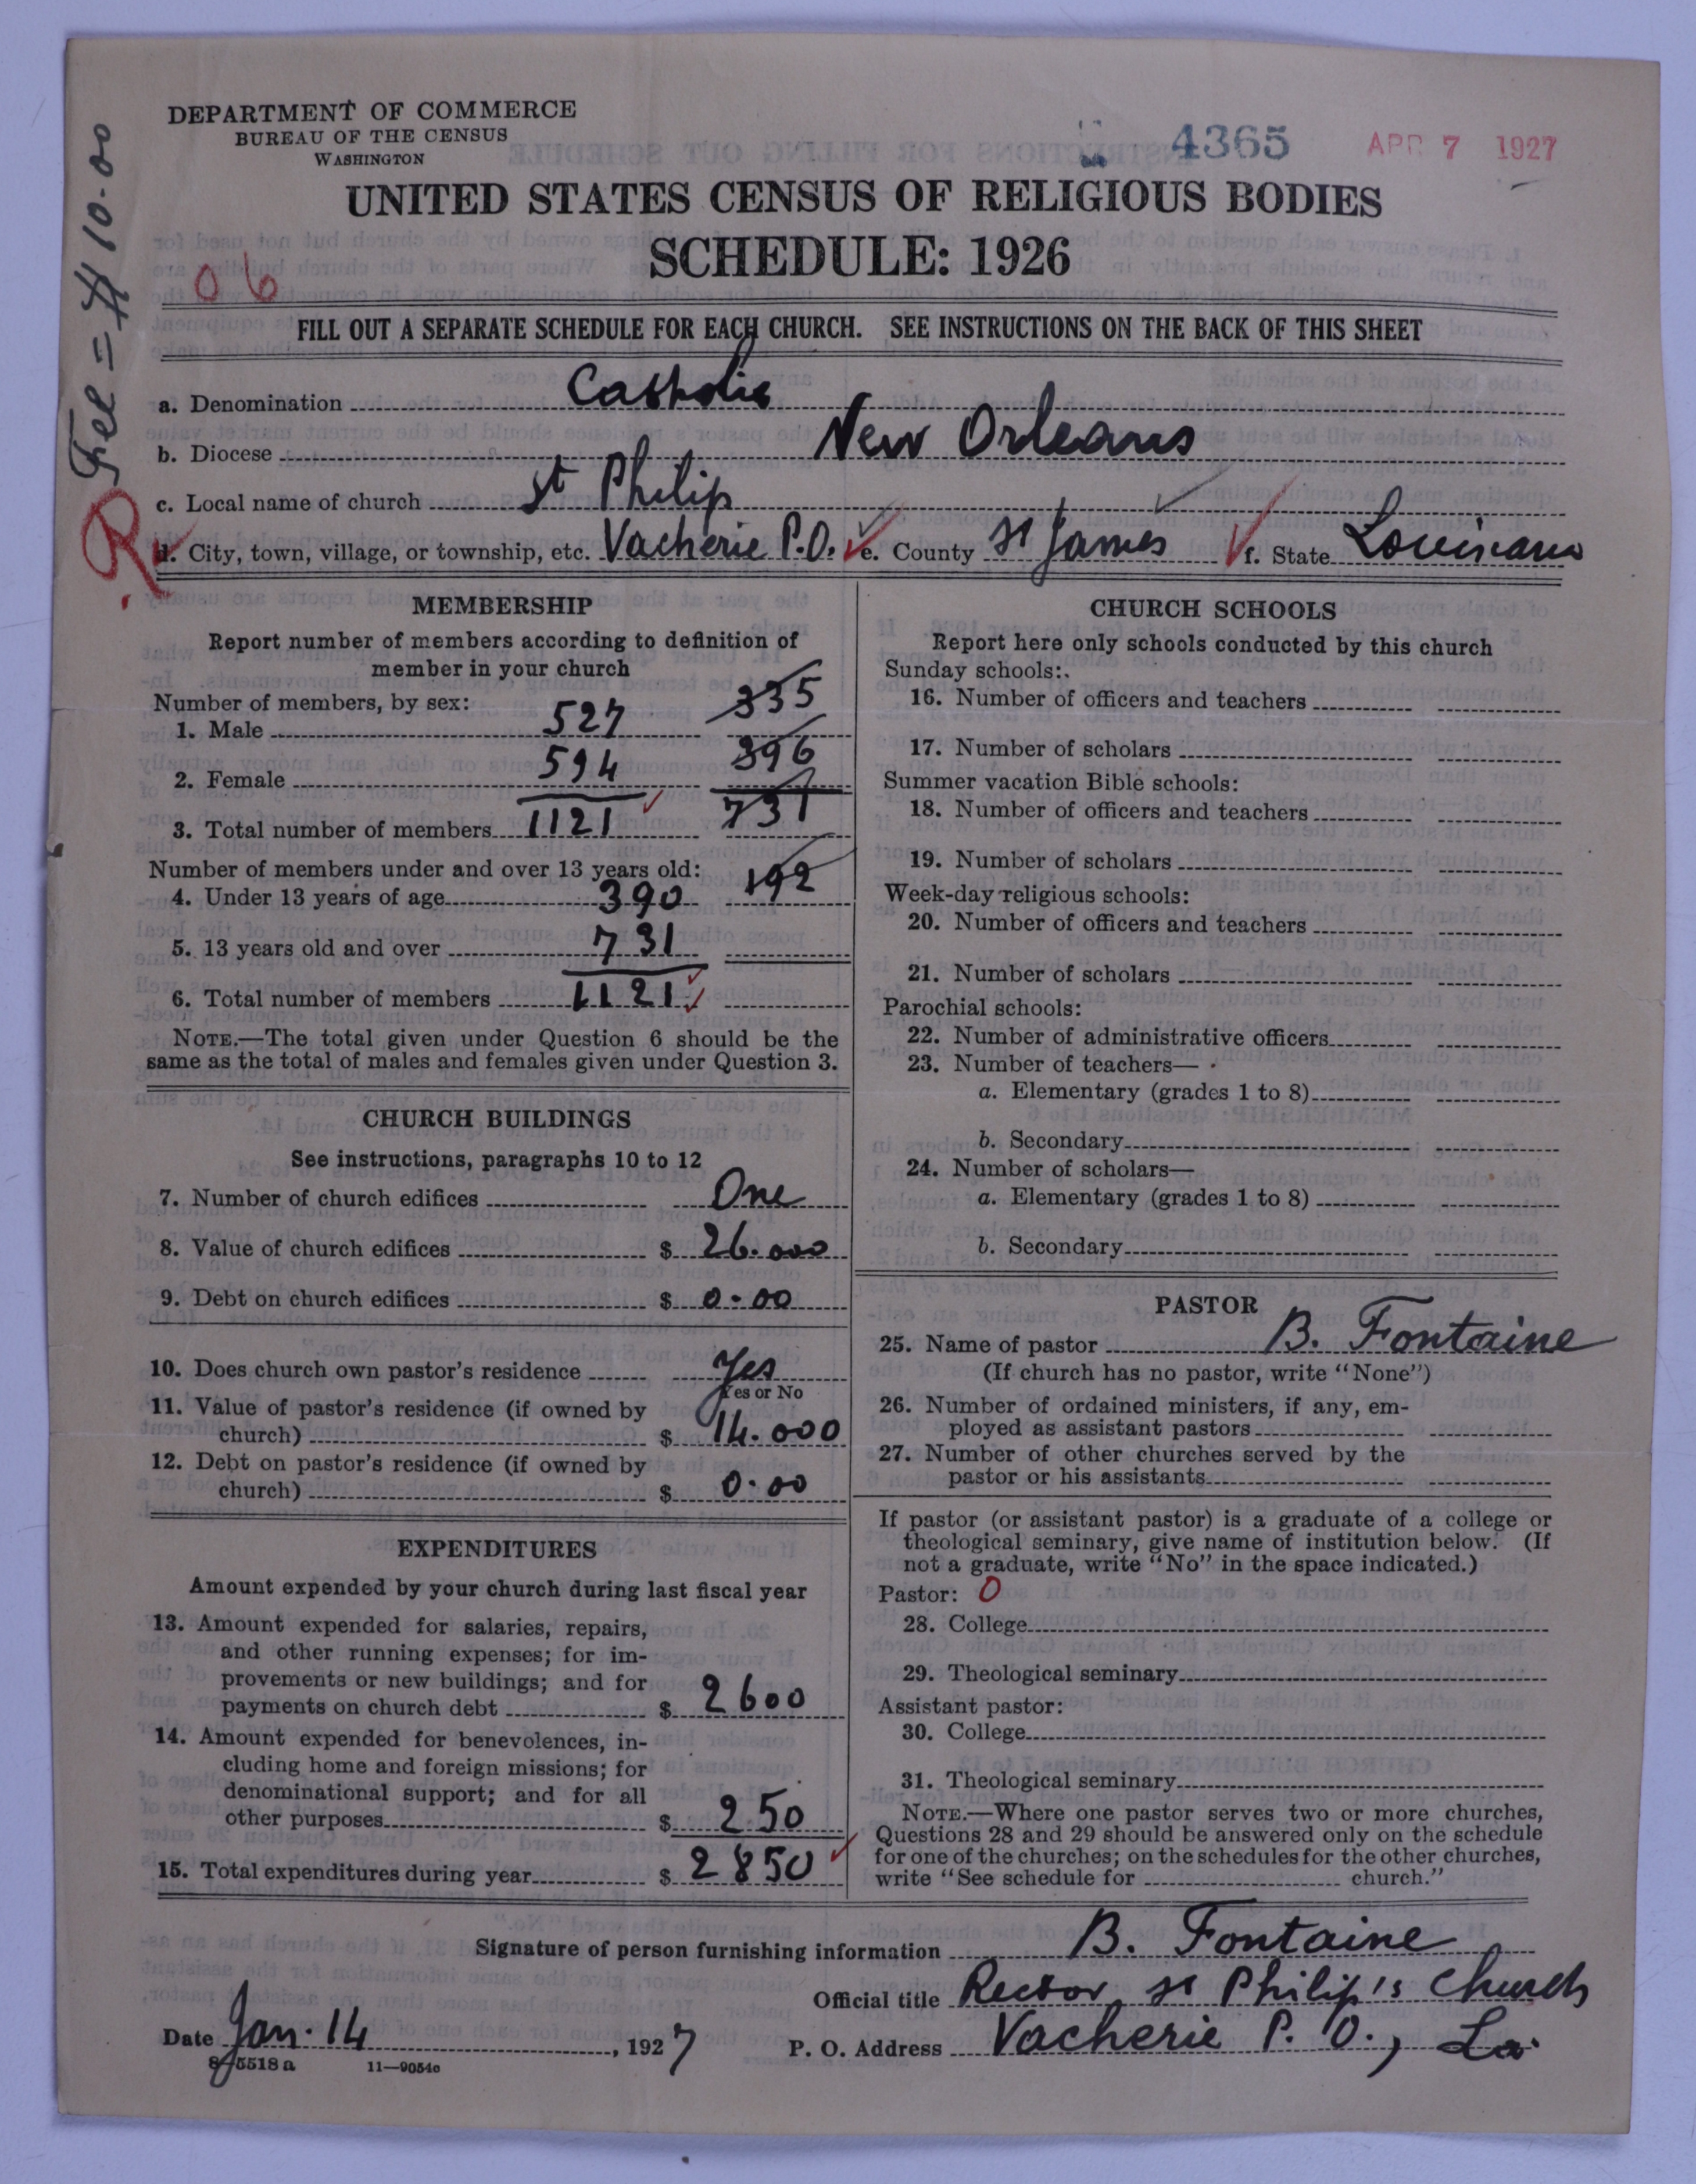 DEPARTMENT OF COMMERCE
BUREAU OF THE CENSUS
WASHINGTON
4365 APR 7 1927
Fee = $10.00
UNITED STATES CENSUS OF RELIGIOUS BODIES
SCHEDULE: 1926
06
FILL OUT A SEPARATE SCHEDULE FOR EACH CHURCH. SEE INSTRUCTIONS ON THE BACK OF THIS SHEET
a. Denomination Catholic
b. Diocese New Orleans
c. Local name of church St Philip
R
d. City, town, village, or township, etc. Vacherie P.O. e. County St James f. State Louisiana
MEMBERSHIP
Report number of members according to definition of
member in your church
Number of members, by sex:
1. Male 527 335
2. Female 594 396
3. Total number of members 1121 731
Number of members under and over 13 years old:
4. Under 13 years of age 390 192
5. 13 years old and over 731
6. Total number of members 1121
NOTE.—The total given under Question 6 should be the
same as the total of males and females given under Question 3.
CHURCH BUILDINGS
See instructions, paragraphs 10 to 12
7. Number of church edifices One
8. Value of church edifices $ 26.000
9. Debt on church edifices $ 0-00
10. Does church own pastor's residence Yes
Yes or No
11. Value of pastor's residence (if owned by
church) $ 14.000
12. Debt on pastor's residence (if owned by
church) $ 0.00
EXPENDITURES
Amount expended by your church during last fiscal year
13. Amount expended for salaries, repairs,
and other running expenses; for im-
provements or new buildings; and for
payments on church debt $ 2600
14. Amount expended for benevolences, in-
cluding home and foreign missions; for
denominational support; and for all
other purposes $ 250
15. Total expenditures during year $ 2850
CHURCH SCHOOLS
Report here only schools conducted by this church
Sunday schools:
16. Number of officers and teachers
17. Number of scholars
Summer vacation Bible schools:
18. Number of officers and teachers
19. Number of scholars
Week-day religious schools:
20. Number of officers and teachers
21. Number of scholars
Parochial schools:
22. Number of administrative officers
23. Number of teachers—
a. Elementary (grades 1 to 8)
b. Secondary
24. Number of scholars—
a. Elementary (grades 1 to 8)
b. Secondary
PASTOR
25. Name of pastor B. Fontaine
(If church has no pastor, write "None")
26. Number of ordained ministers, if any, em-
ployed as assistant pastors
27. Number of other churches served by the
pastor or his assistants
If pastor (or assistant pastor) is a graduate of a college or
theological seminary, give name of institution below. (If
not a graduate, write "No" in the space indicated.)
Pastor: 0
28. College
29. Theological seminary
Assistant pastor:
30. College
31. Theological seminary
NOTE.—Where one pastor serves two or more churches,
Questions 28 and 29 should be answered only on the schedule
for one of the churches; on the schedules for the other churches,
write "See schedule for church."
Signature of person furnishing information B. Fontaine
Official title Rector, St Philip's Church
Date Jan. 14, 1927 P. O. Address Vacherie P. O., La.
8-5518a 11—9054c